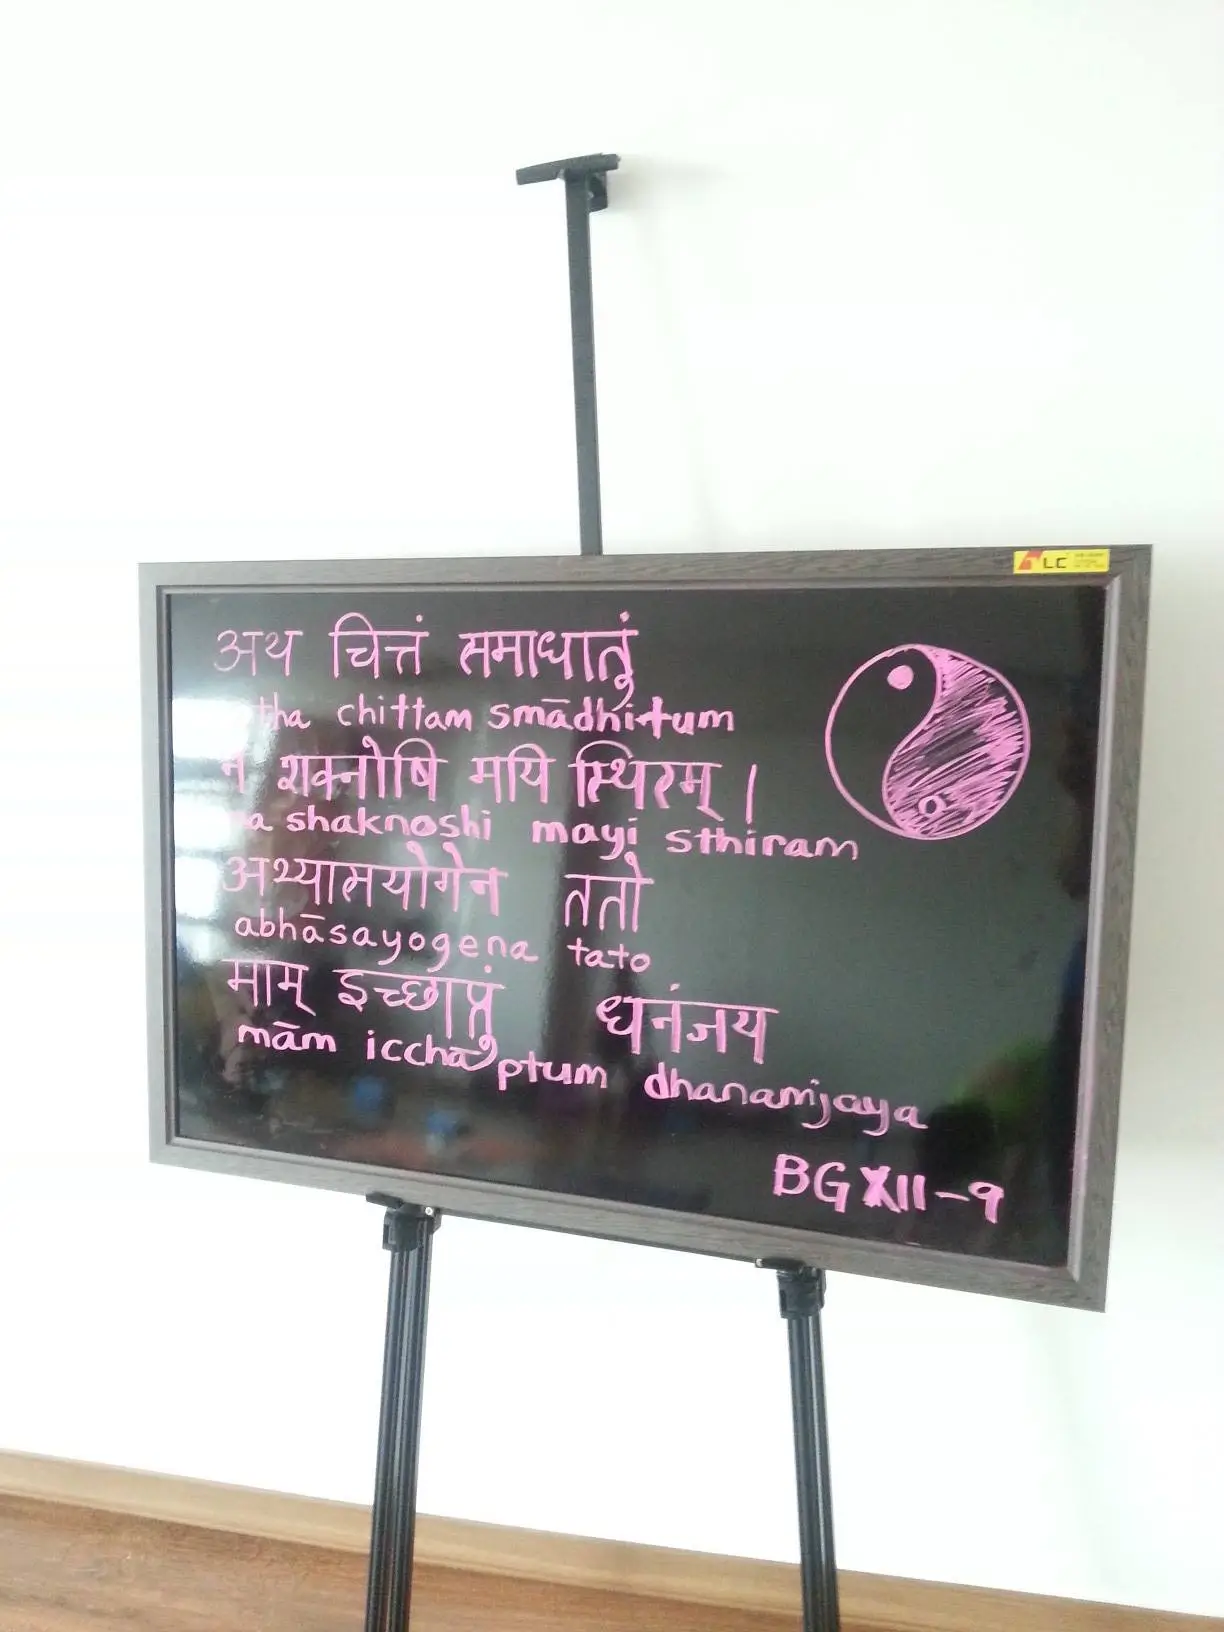 अथ चित्तं समाधातुं
tha chittam smādhitum
न शक्नोषि मयि स्थिरम् ।
na shaknoshi mayi sthiram
अभ्यासयोगेन ततो
abhāsayogena tato
माम् इच्छाप्तुं धनंजय
mām icchaptum dhanamjaya
BG XII-9
LC